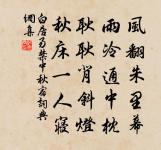 風翻朱裏幕
雨冷通中枕
耿耿背斜燈
秋床一人寢
白居易禁中秋宿詞典
網集